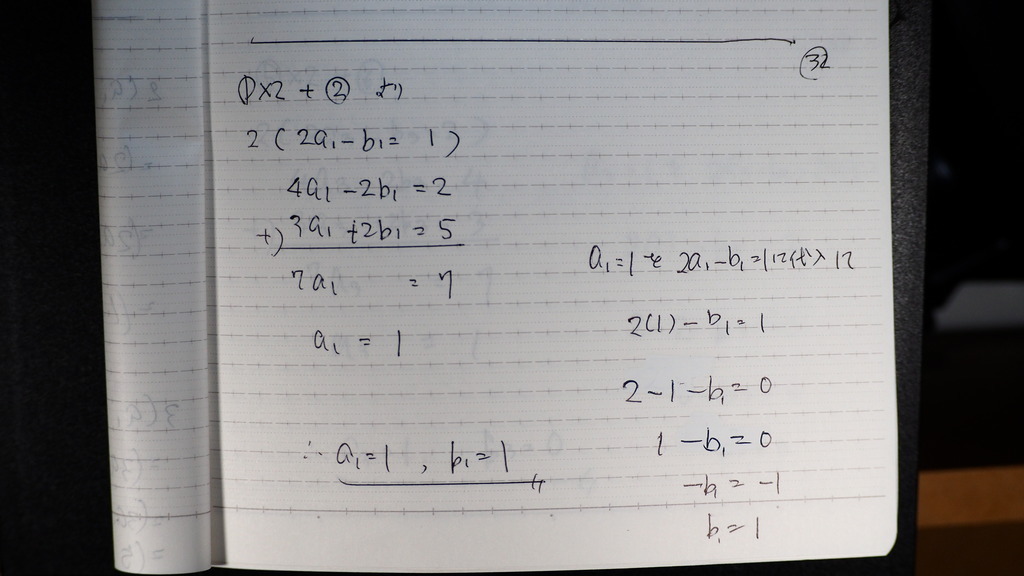 32
①×2 + ② より
2 ( 2a₁ - b₁ = 1 )
4a₁ - 2b₁ = 2
+) 3a₁ + 2b₁ = 5
7a₁ = 7
a₁ = 1
∴ a₁ = 1 , b₁ = 1
a₁ = 1 を 2a₁ - b₁ = 1 に代入
2(1) - b₁ = 1
2 - 1 - b₁ = 0
1 - b₁ = 0
-b₁ = -1
b₁ = 1